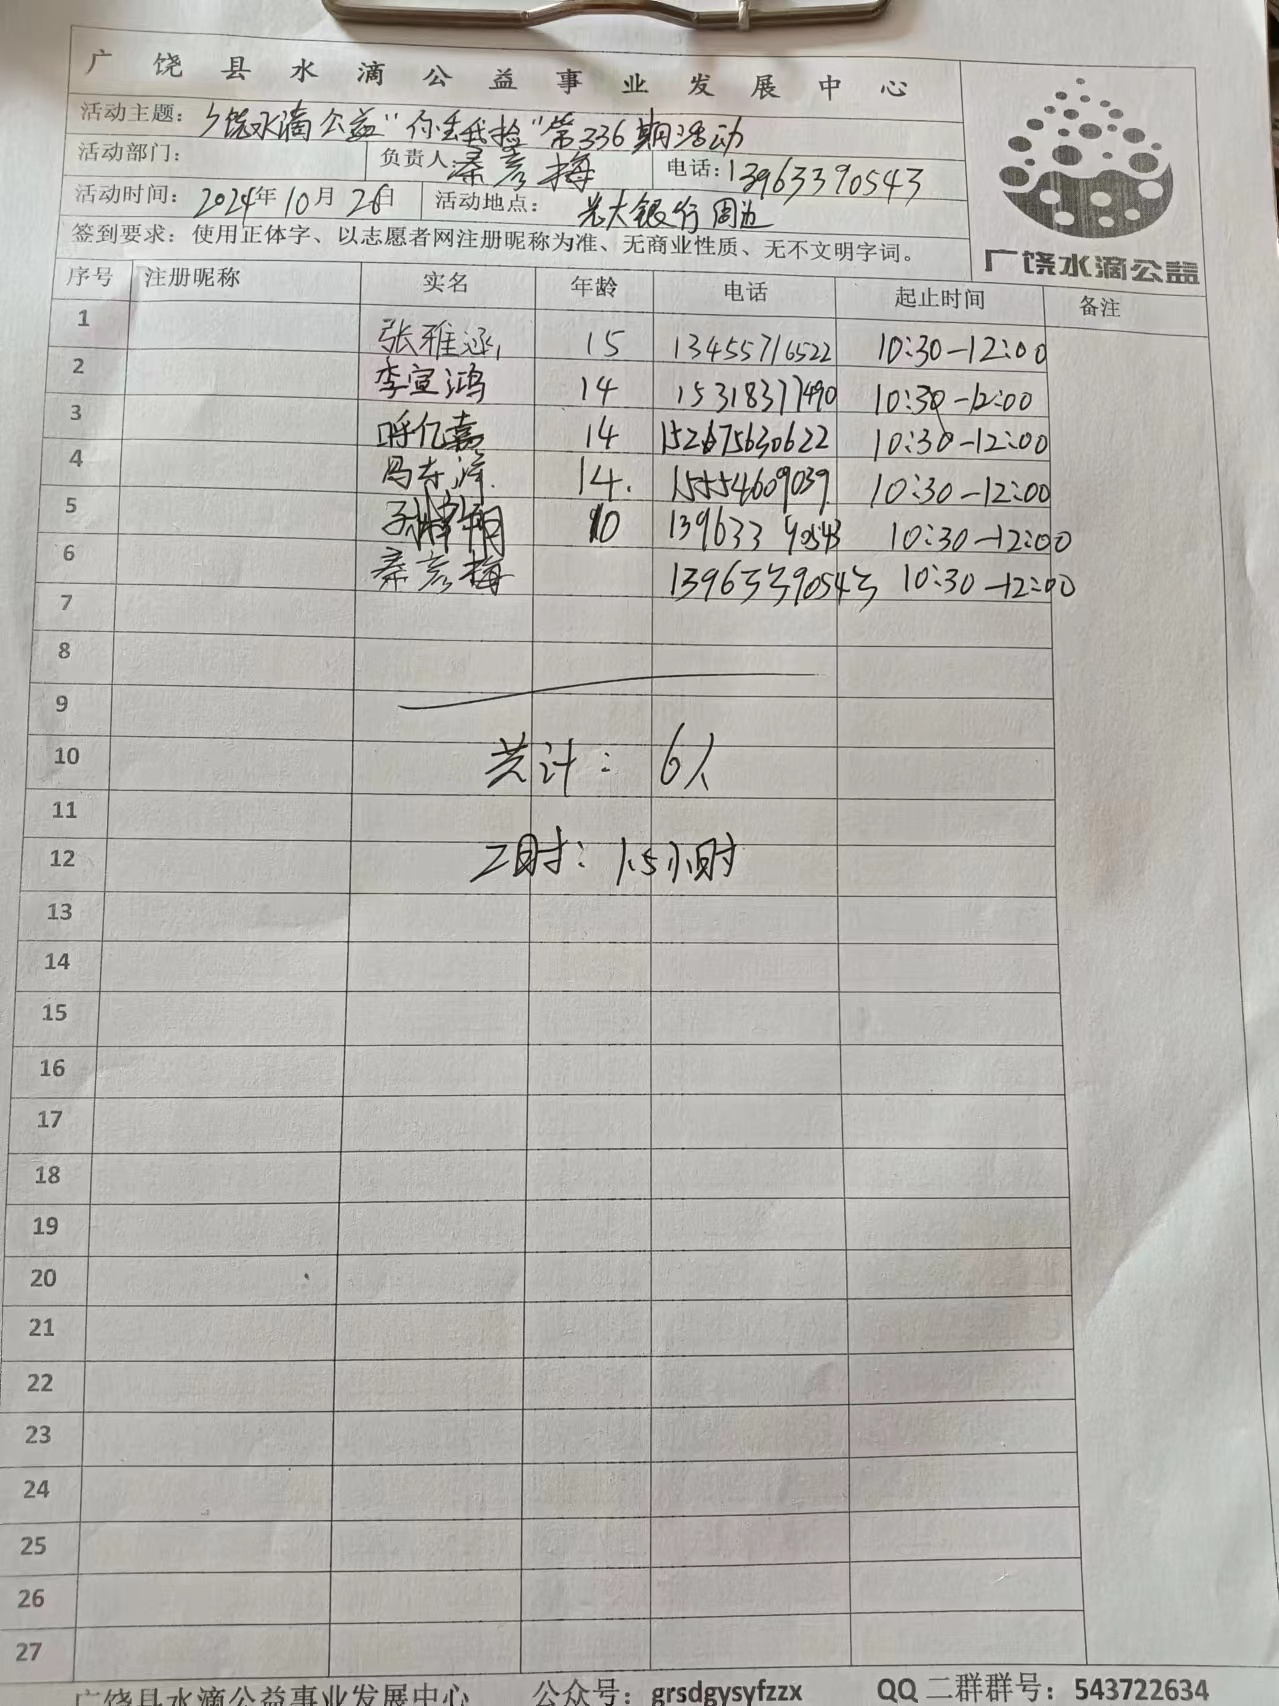 广饶县水滴公益事业发展中心
活动主题：广饶水滴公益"你丢我捡"第336期活动
活动部门： 负责人 秦彦梅 电话：13963390543
活动时间：2024年10月26日 活动地点：光大银行周边
签到要求：使用正体字、以志愿者网注册昵称为准、无商业性质、无不文明字词。
广饶水滴公益
序号 注册昵称 实名 年龄 电话 起止时间 备注
1 张雅涵 15 13455716522 10:30-12:00
2 李宣鸿 14 15318377490 10:30-12:00
3 呼亿嘉 14 10:30-12:00
4 14. 15554609039 10:30-12:00
5 10 13963390543 10:30-12:00
6 秦彦梅 13963390543 10:30-12:00
7
8
9
10 共计：6人
11
12 工时：1.5小时
13
14
15
16
17
18
19
20
21
22
23
24
25
26
27
广饶县水滴公益事业发展中心 公众号：grsdgysyfzzx QQ二群群号：543722634